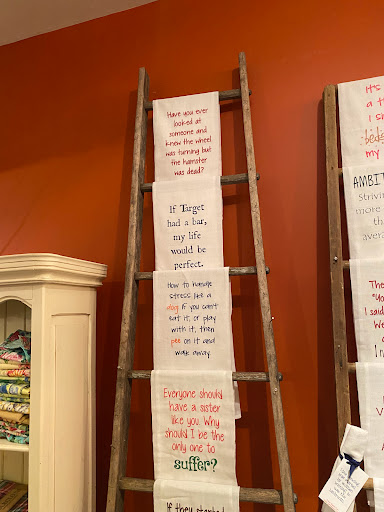 Have you ever
looked at
someone and
knew the wheel
was turning but
the hamster
was dead?
If Target
had a bar,
my life
would be
perfect.
How to handle
stress like a
dog if you can't
eat it, or play
with it, then
pee on it and
walk away.
Everyone should
have a sister
like you. Why
should I be the
only one to
suffer?
If they started
It's
a th
I s
my
AMBIT
Strivin
more
than
avera
The
"Yo
I said
We